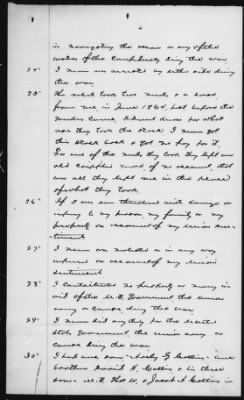 in navigating the ocean or any of the
waters of the Confederacy during the war.
24" I never was arrested by either side during
the war.
25" The rebels took two mules & a horse
from me in June 1864, but before the
Yankees came. I dont know for what
use they took the stock. I never got
this stock back & got no pay for it.
For one of the mules they took they left an
old crippled mule of no account, that
was all they left me in the place
of what they took.
26" If I was ever threatened with damage or
injury to my person, my family or my
property on account of my union sen-
timents
27" I never was molested or in any way
injured on account of my union
sentiments
28" I contributed no property or money in
aid of the U.S. Government the union
army or cause during the war.
29" I never did any thing for the United
States Government, the union army or
cause during the war.
30" I had one son Collins one
brother David H. Collins & his three
sons W. F. Thos W. & Jacob A Collins in